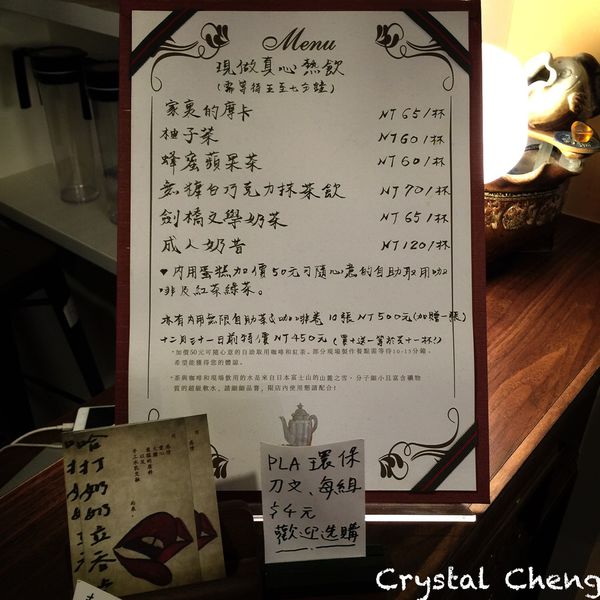 Menu
現做真心熱飲
(需等待五至七分鐘)
家裏的摩卡 NT 65/杯
柚子茶 NT 60/杯
蜂蜜蘋果茶 NT 60/杯
無糖白巧克力抹茶飲 NT 70/杯
劍橋文學奶茶 NT 65/杯
成人奶昔 NT 120/杯
♥內用蛋糕加價50元可隨心意的自助取用咖
啡及紅茶綠茶。
本有內用無限自助茶&咖啡卷 10張 NT 500元(加贈一張)
十二月三十一日前特價 NT 450元 (買十送一等於共十一杯!)
*加價50元可隨心意的自助取用咖啡和紅茶。部分現場製作餐點需等待10-15分鐘。
希望能獲得您的體諒。
*茶與咖啡和現場飲用的水是來自日本富士山的山麓之雪，分子細小且富含礦物
質的超級軟水，請細細品嘗，限店內使用懇請配合!
PLA 環保
刀叉、每組
$4元
歡迎選購
Crystal Cheng